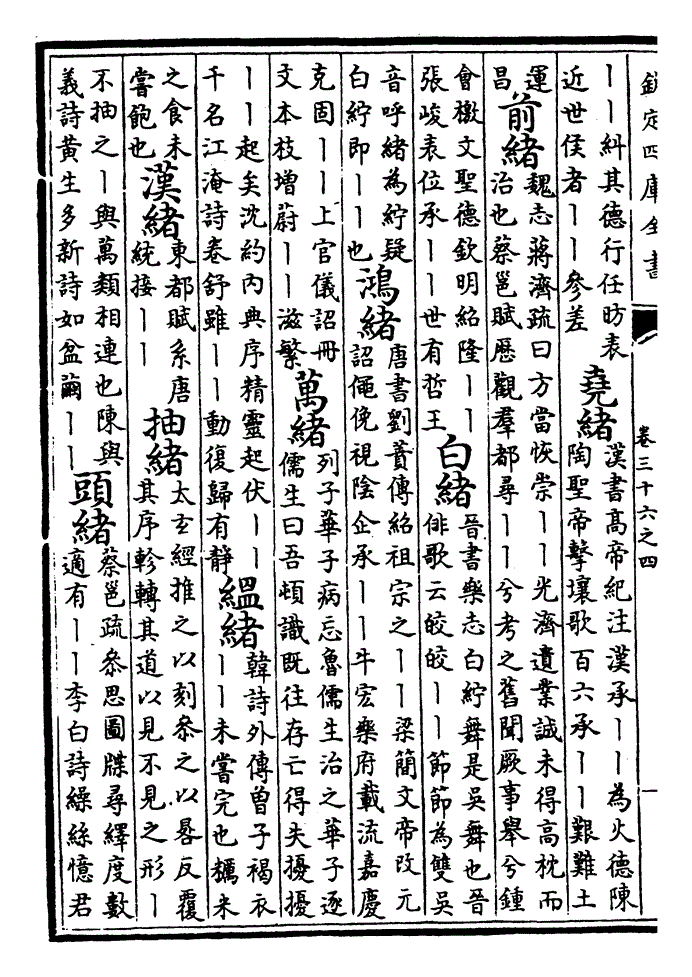 欽定四庫全書 卷三十六之四 一
丨丨糾其德行任昉表
近世侯者丨丨參差
堯緒
漢書高帝紀注漢承丨丨為火德陳
陶聖帝擊壤歌百六承丨丨艱難土
運
昌
前緒
魏志蔣濟疏曰方當恢崇丨丨光濟遺業誠未得高枕而
治也蔡邕賦歷觀羣都尋丨丨兮考之舊聞厥事舉兮鍾
會檄文聖德欽明紹隆丨丨
張峻表位承丨丨世有哲王
白緒
晉書樂志白紵舞是吳舞也晉
俳歌云皎皎丨丨節節為雙吳
音呼緒為紵疑
白紵即丨丨也
鴻緒
唐書劉蕡傳紹祖宗之丨丨梁簡文帝改元
詔僶俛視陰企承丨丨牛宏樂府載流嘉慶
克固丨丨上官儀詔冊
文本枝增蔚丨丨滋繁
萬緒
列子華子病忘魯儒生治之華子逐
儒生曰吾頓識既往存亡得失擾擾
丨丨起矣沈約內典序精靈起伏丨丨
千名江淹詩卷舒雖丨丨動復歸有靜
縕緒
韓詩外傳曾子褐衣
丨丨未嘗完也糲米
之食未
嘗飽也
漢緒
東都賦系唐
統接丨丨
抽緒
太玄經推之以刻叅之以晷反覆
其序軫轉其道以見不見之形丨
不抽之丨與萬類相連也陳與
義詩黃生多新詩如盆繭丨丨
頭緒
蔡邕疏叅思圖牒尋繹度數
適有丨丨李白詩繰絲憶君